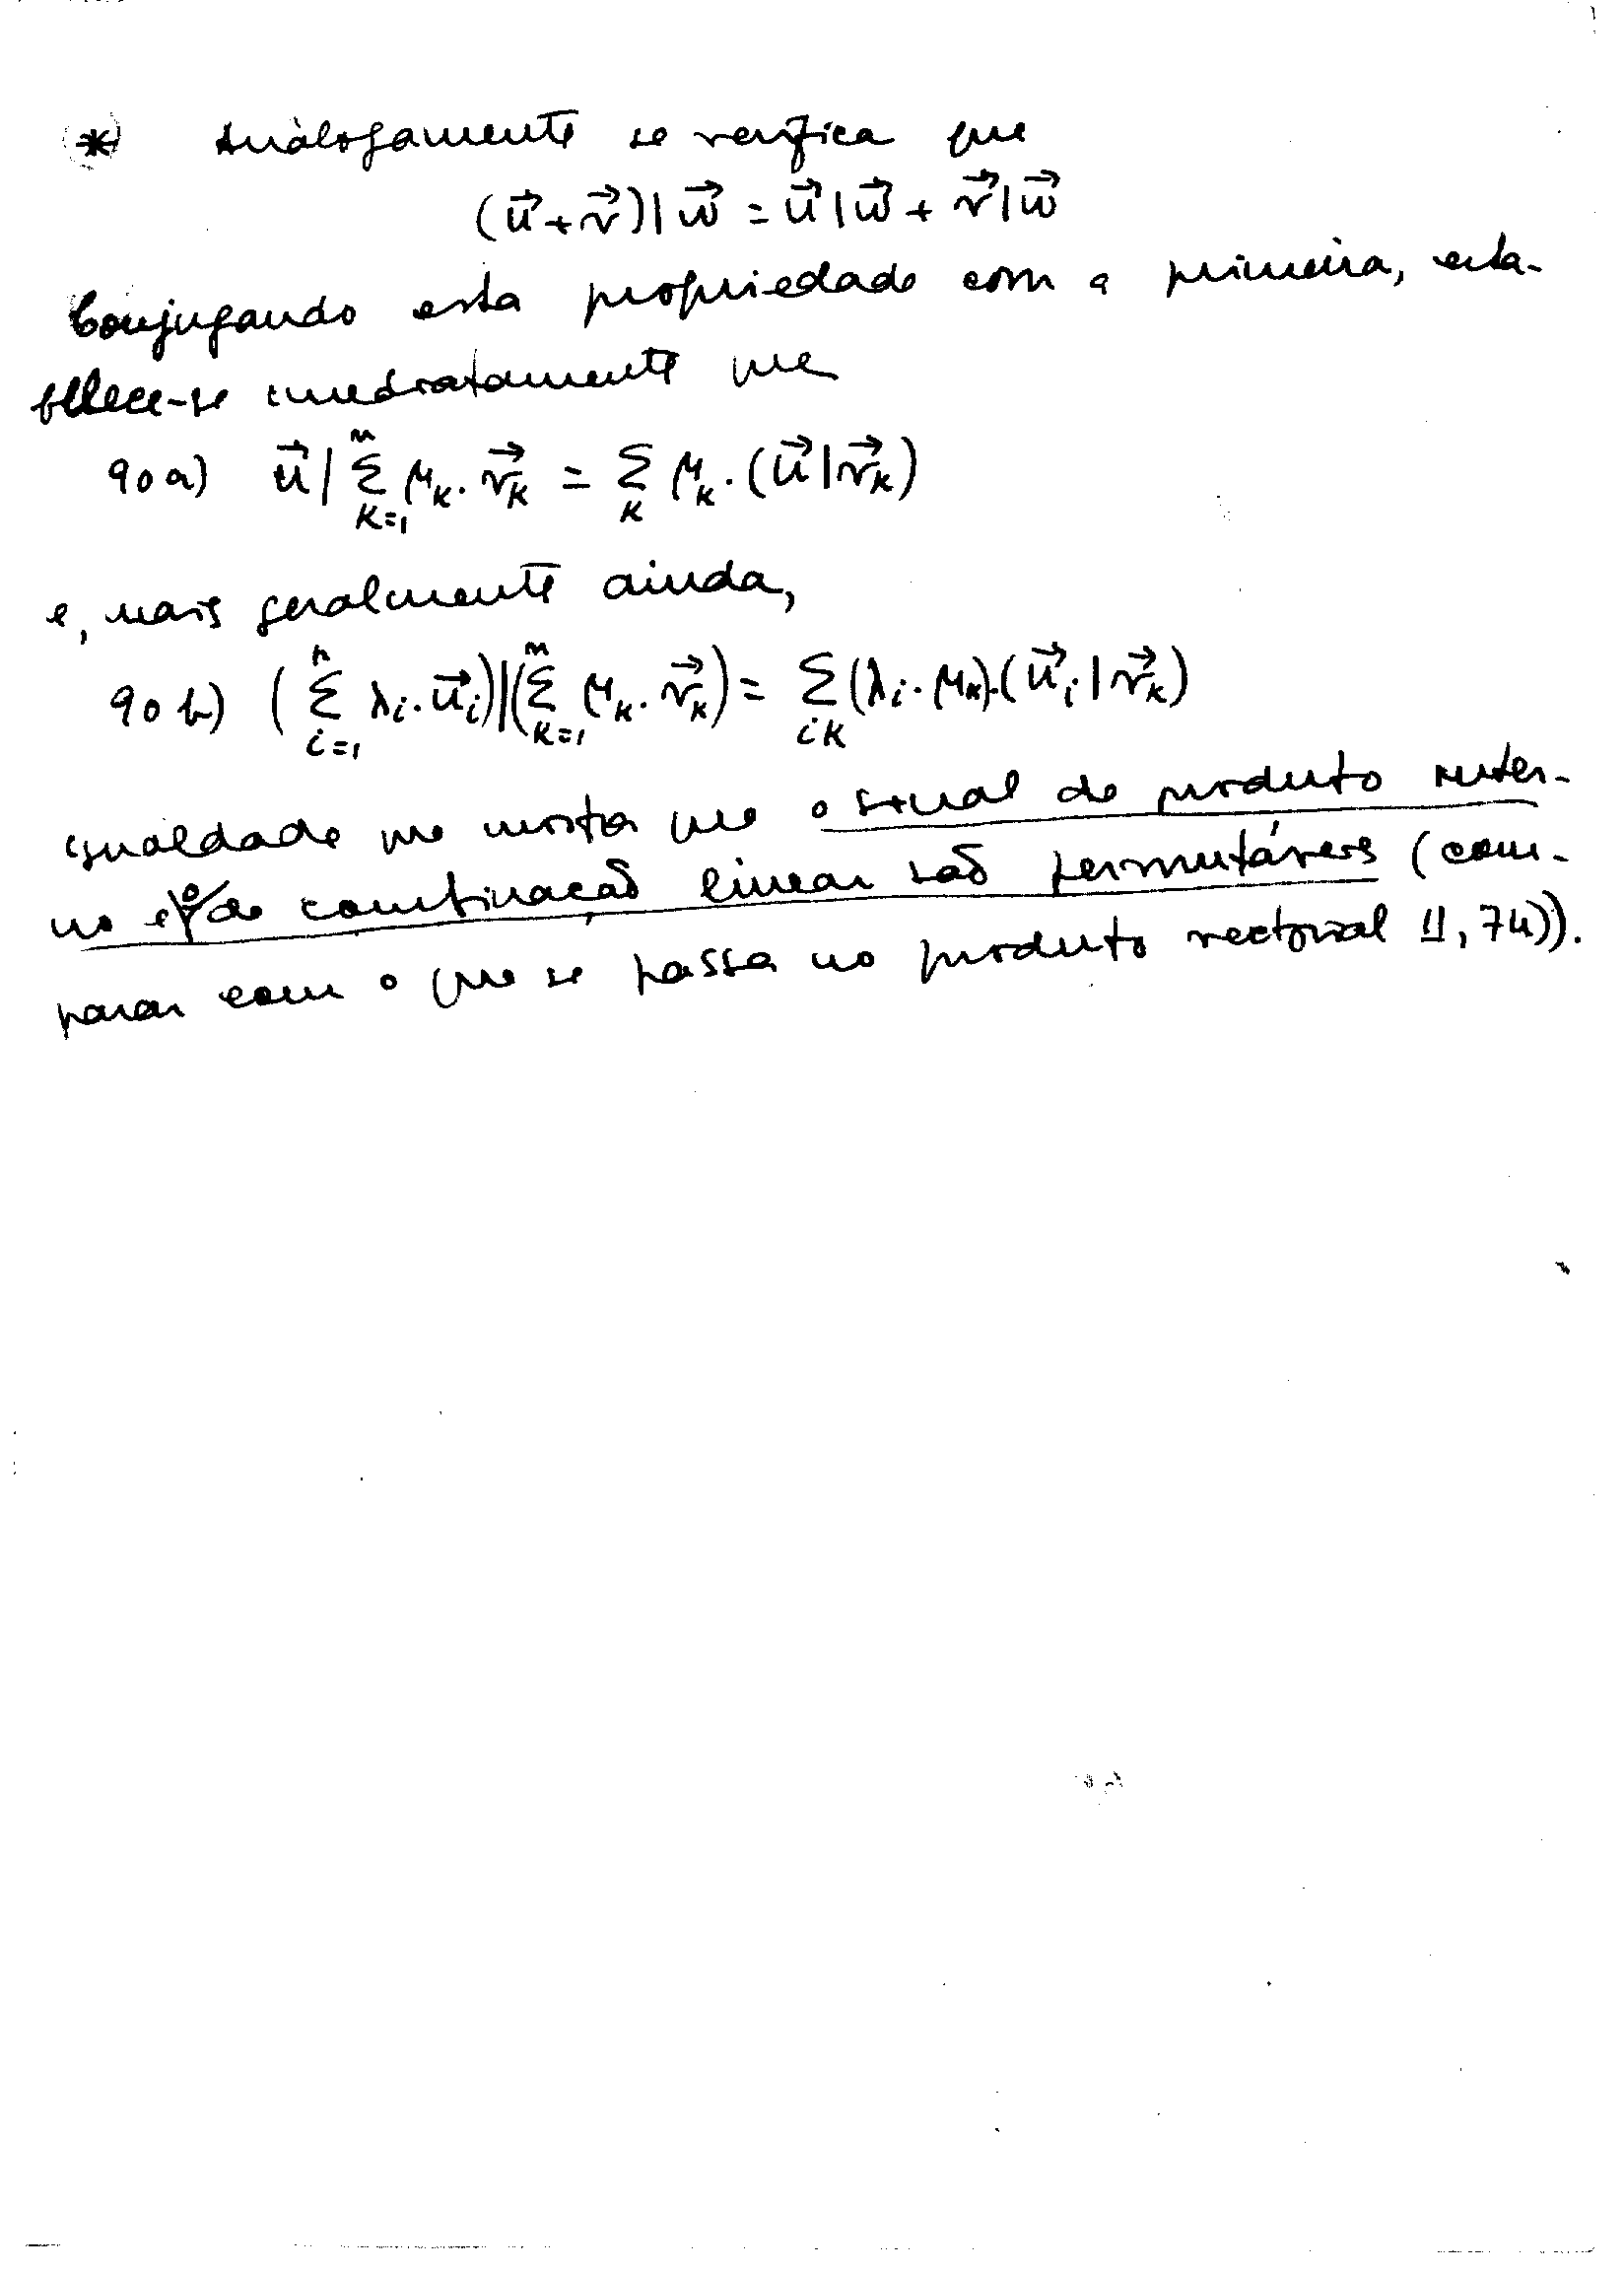 * Análogamente se verifica que
(u⃗ + v⃗) | w⃗ = u⃗ | w⃗ + v⃗ | w⃗
Conjugando esta propriedade com a primeira, esta-
bllece-se imediatamente que
90 a) u⃗ | Σ_{k=1}^{m} μ_k · v⃗_k = Σ_k μ_k · (u⃗ | v⃗_k)
e, mais geralmente ainda,
90 b) (Σ_{i=1}^{n} λ_i · u⃗_i) | (Σ_{k=1}^{m} μ_k · v⃗_k) = Σ_{ik} (λ_i · μ_k) · (u⃗_i | v⃗_k)
igualdade que mostra que o sinal de produto inter-
no e o de combinação linear são permutáveis (com-
parar com o que se passa no produto vectorial 11, 74)).